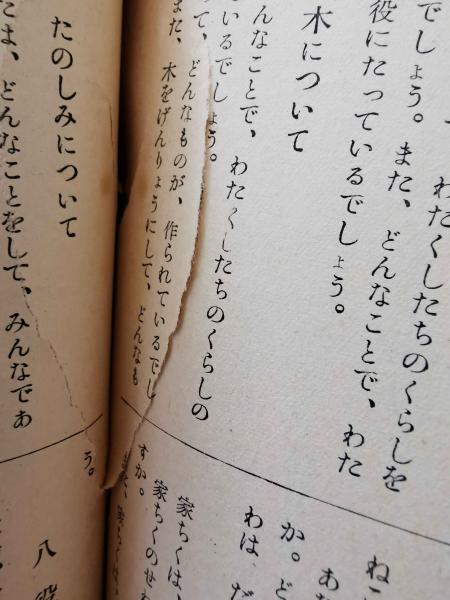 わたくしたちのくらしを
でしょう。また、どんなことで、わた
役にたっているでしょう。
木について
んなことで、わたくしたちのくらしの
いるでしょう。
って、どんなものが、作られているでし
また、木をげんりょうにして、どんなも
たのしみについて
どんなことをして、みんなであ
う。
ね
あ
か。ど
わは、だ
家ちくは、
家ちくのせわ
すか。
八